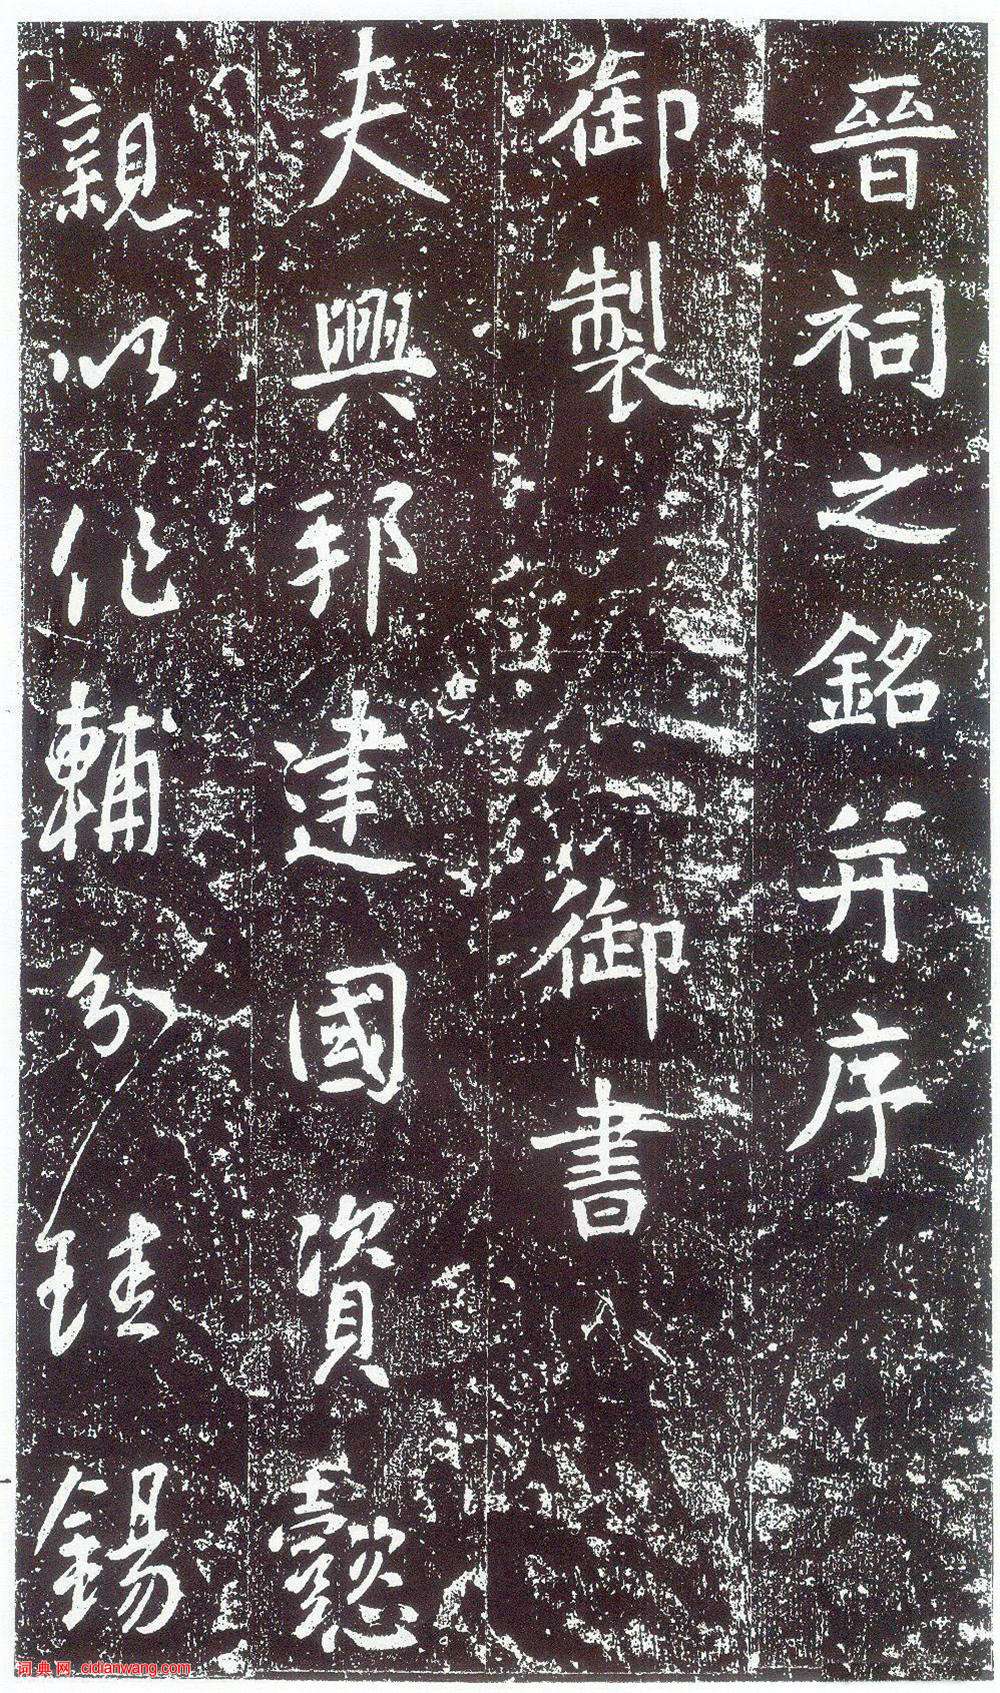 晉祠之銘并序
御製 御書
夫興邦建國資懿
親以作輔分珪錫
词典网 cidianwang.com